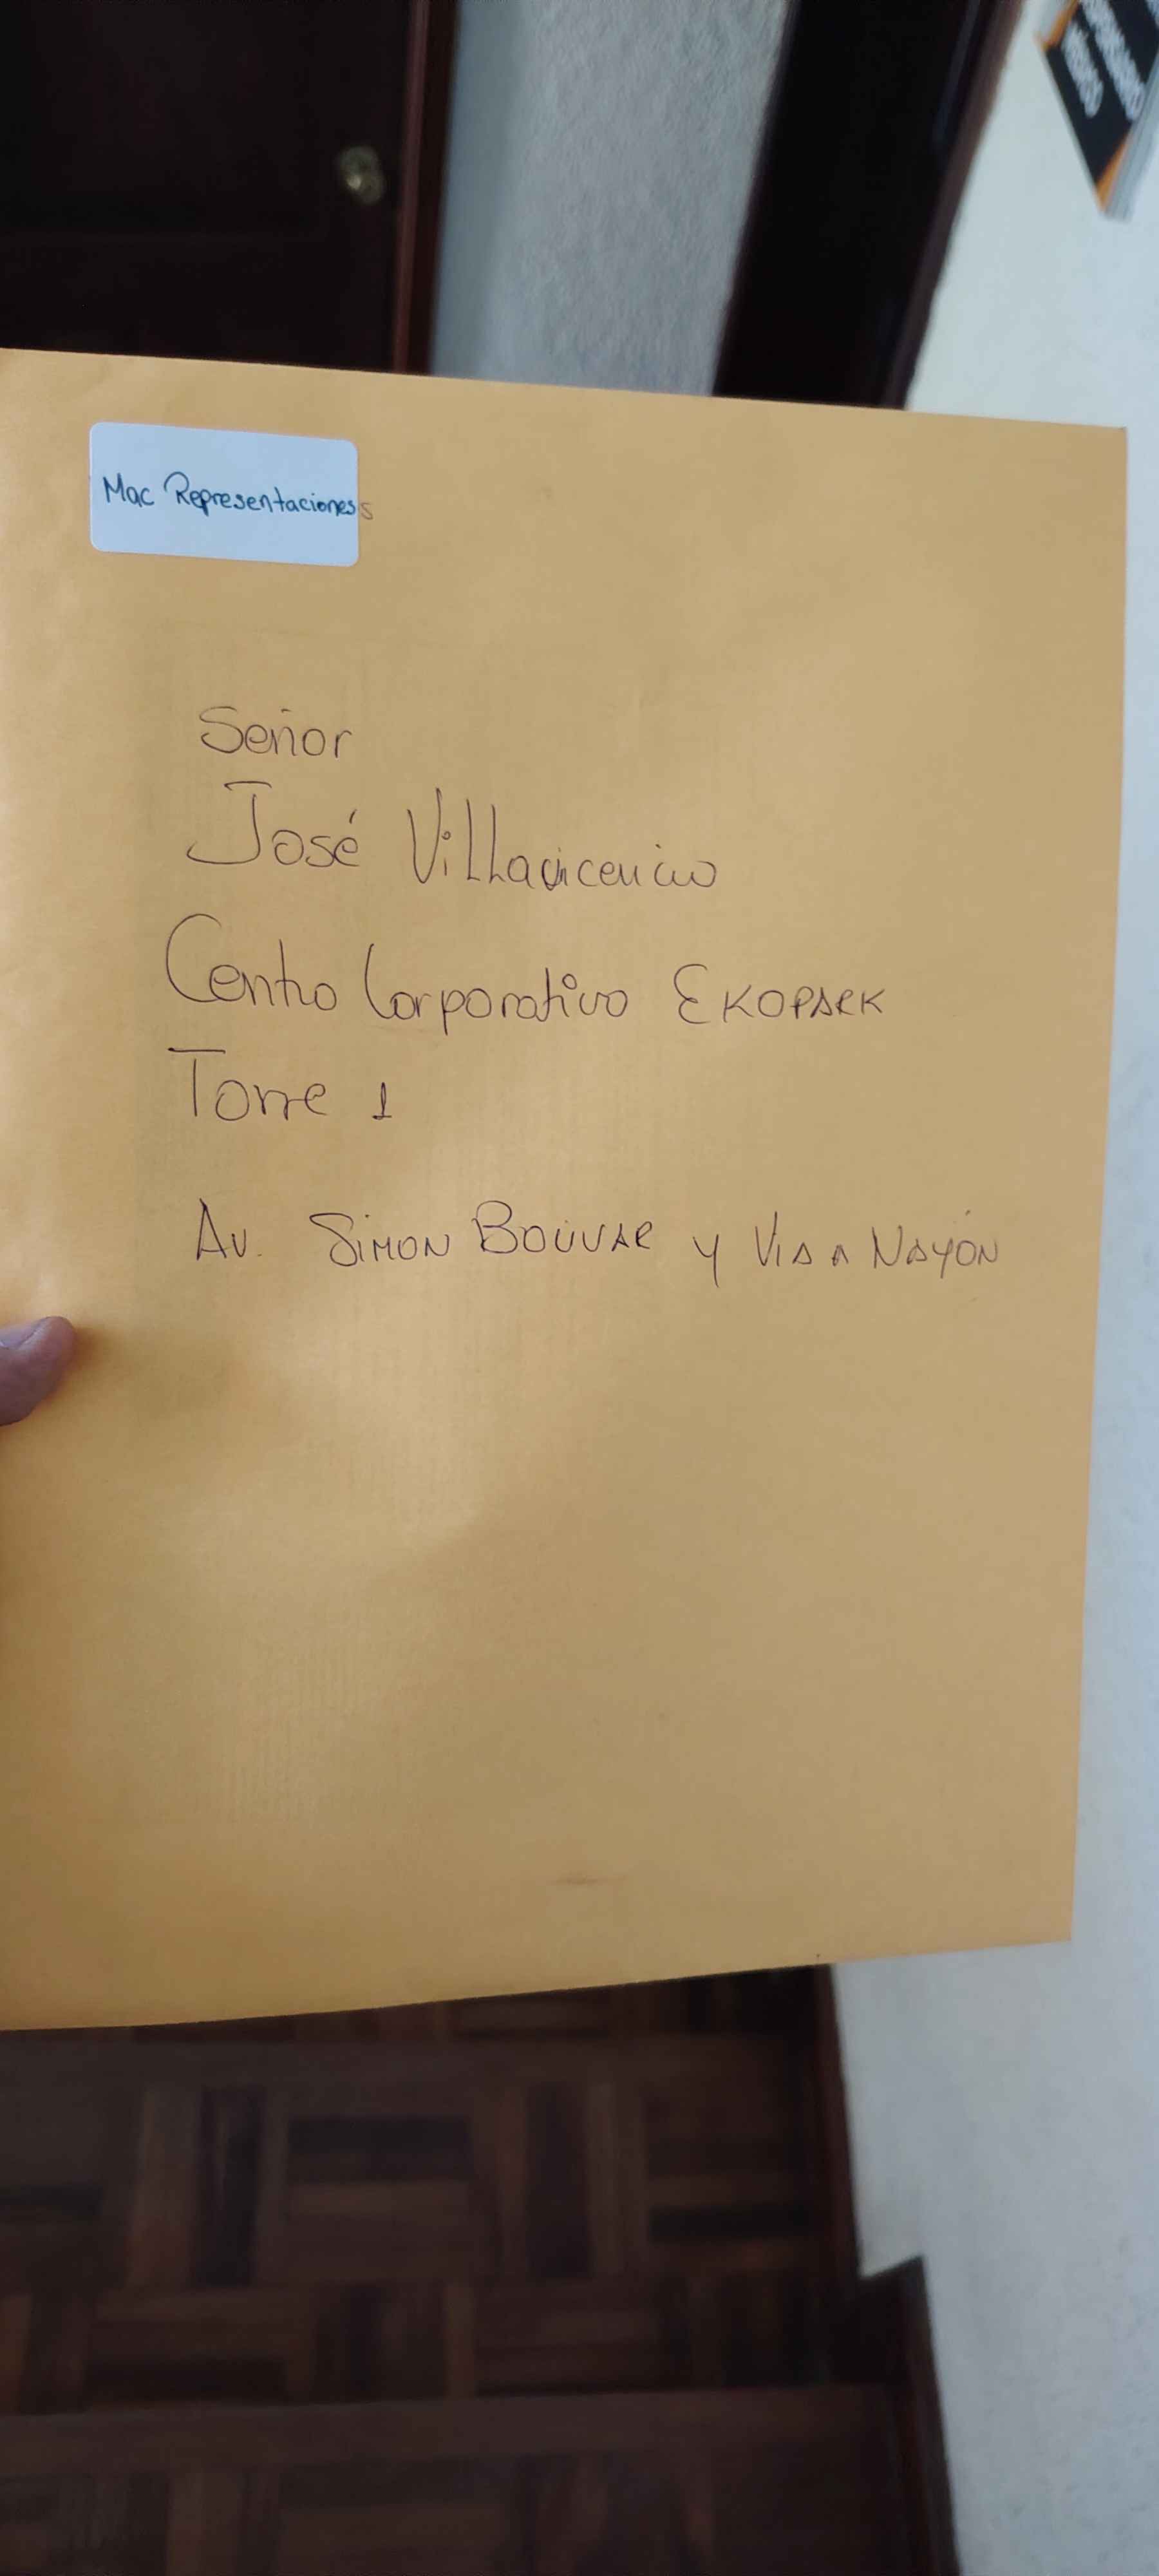 Mac Representaciones s
Señor
José Villavicencio
Centro Corporativo EKOPARK
Torre 1
Av. SIMON BOLIVAR y VIA A NAYÓN